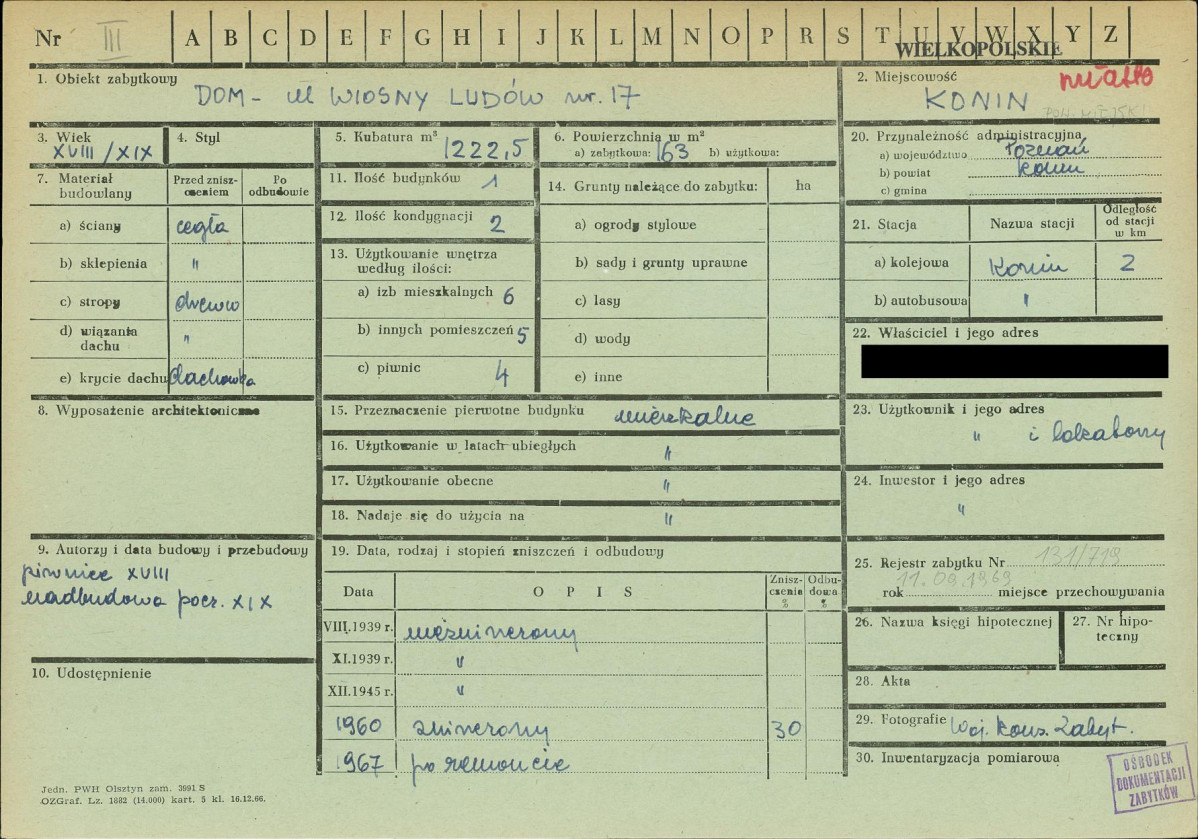 Nr III A B C D E F G H I J K L M N O P R S T U V W X Y Z
WIELKOPOLSKIE
1. Obiekt zabytkowy
DOM - ul WIOSNY LUDÓW nr. 17
2. Miejscowość
miasto
KONIN
3. Wiek
XVIII/XIX
4. Styl
5. Kubatura m³
1222,5
6. Powierzchnia w m²
a) zabytkowa: 163 b) użytkowa:
20. Przynależność administracyjna
a) województwo Poznań
b) powiat Konin
c) gmina
7. Materiał budowlany
Przed zniszczeniem
Po odbudowie
a) ściany cegła
b) sklepienia "
c) stropy drewno
d) wiązania dachu "
e) krycie dachu dachówka
11. Ilość budynków 1
12. Ilość kondygnacji 2
13. Użytkowanie wnętrza
według ilości:
a) izb mieszkalnych 6
b) innych pomieszczeń 5
c) piwnic 4
14. Grunty należące do zabytku: ha
a) ogrody stylowe
b) sady i grunty uprawne
c) lasy
d) wody
e) inne
21. Stacja
Nazwa stacji
Odległość
od stacji
w km
a) kolejowa Konin 2
b) autobusowa "
22. Właściciel i jego adres
8. Wyposażenie architektoniczne
15. Przeznaczenie pierwotne budynku mieszkalne
16. Użytkowanie w latach ubiegłych "
17. Użytkowanie obecne "
18. Nadaje się do użycia na "
23. Użytkownik i jego adres
" i lokatorzy
24. Inwestor i jego adres
"
9. Autorzy i data budowy i przebudowy
piwnice XVIII
nadbudowa pocz. XIX
10. Udostępnienie
19. Data, rodzaj i stopień zniszczeń i odbudowy
Data
O P I S
Zniszczenia %
Odbudowa %
VIII.1939 r. niezniszczony
XI.1939 r. "
XII.1945 r. "
1960 zniszczony 30
1967 po remoncie
25. Rejestr zabytku Nr 131/719
11.09.1969
rok miejsce przechowywania
26. Nazwa księgi hipotecznej
27. Nr hipoteczny
28. Akta
29. Fotografie Woj. Kons. Zabyt.
30. Inwentaryzacja pomiarowa
OŚRODEK
DOKUMENTACJI
ZABYTKÓW
Jedn. PWH Olsztyn zam. 3991 S
OZGraf. Lz. 1882 (14.000) kart. 5 kl. 16.12.66.